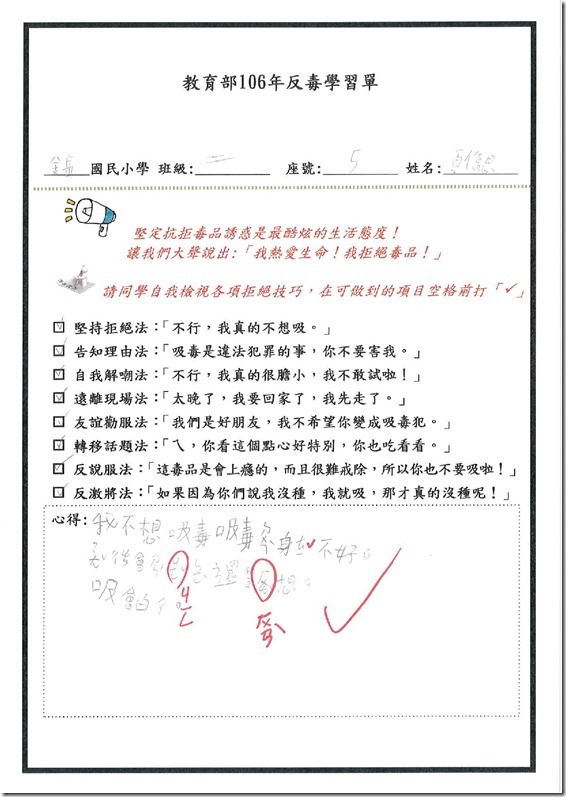 教育部106年反毒學習單
國民小學 班級:二 座號:5 姓名:
堅定抗拒毒品誘惑是最酷炫的生活態度!
讓我們大聲說出:「我熱愛生命!我拒絕毒品!」
請同學自我檢視各項拒絕技巧,在可做到的項目空格前打「✓」
☑ 堅持拒絕法:「不行,我真的不想吸。」
☑ 告知理由法:「吸毒是違法犯罪的事,你不要害我。」
☑ 自我解嘲法:「不行,我真的很膽小,我不敢試啦!」
☑ 遠離現場法:「太晚了,我要回家了,我先走了。」
☑ 友誼勸服法:「我們是好朋友,我不希望你變成吸毒犯。」
☑ 轉移話題法:「ㄟ,你看這個點心好特別,你也吃看看。」
☑ 反說服法:「這毒品是會上癮的,而且很難戒除,所以你也不要吸啦!」
☑ 反激將法:「如果因為你們說我沒種,我就吸,那才真的沒種呢!」
心得:我不想吸毒吸毒 身 不好。
會 還 想。
吸會